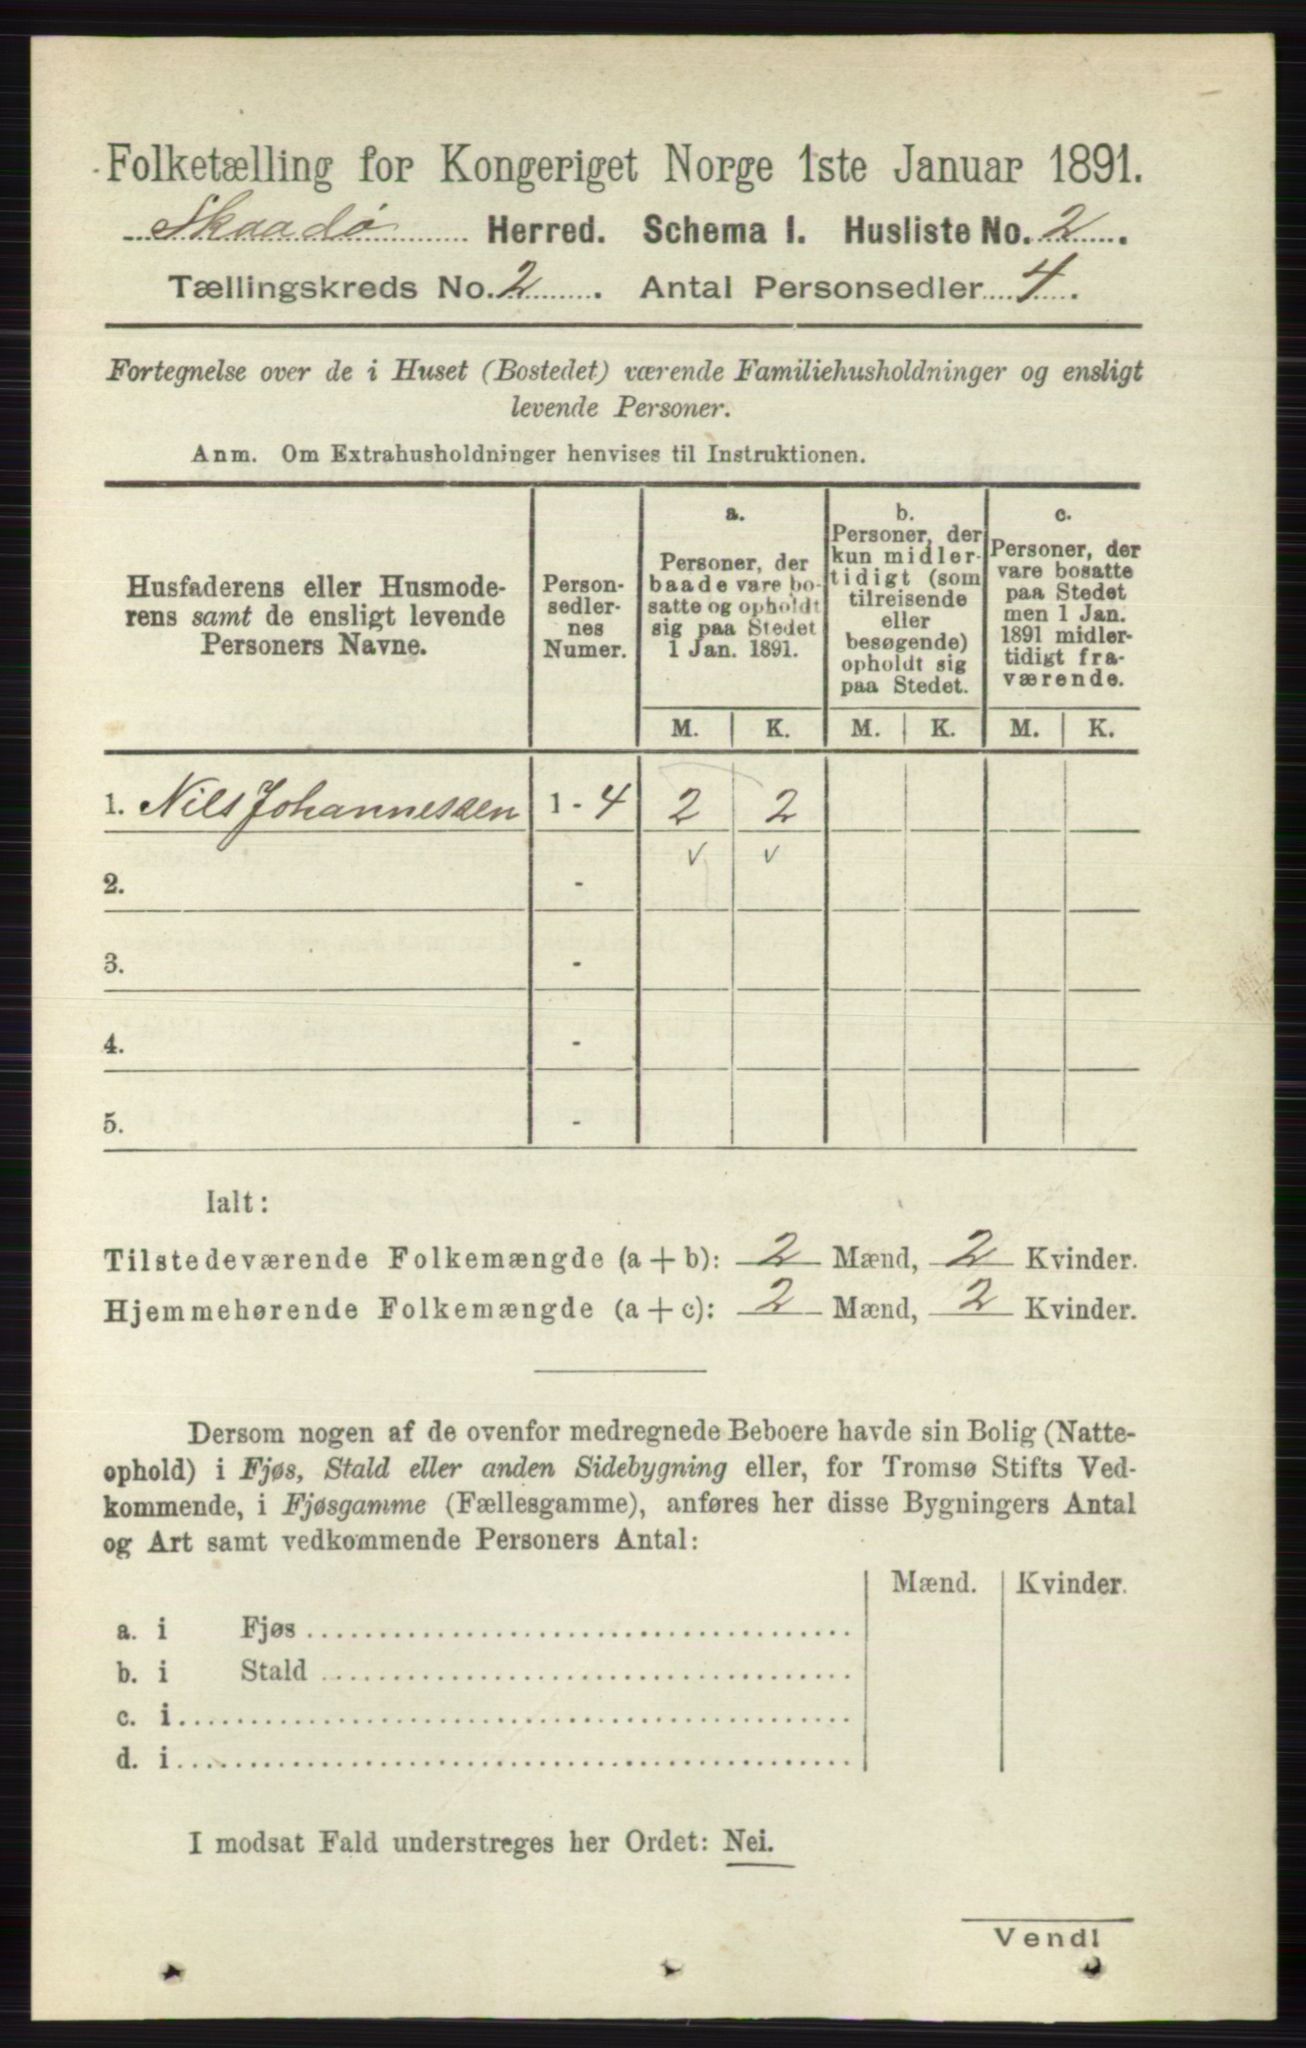 Folketælling for Kongeriget Norge 1ste Januar 1891.
Skaadø Herred. Schema I. Husliste No. 2.
Tællingskreds No. 2. Antal Personsedler 4.
Fortegnelse over de i Huset (Bostedet) værende Familiehusholdninger og ensligt
levende Personer.
Anm. Om Extrahusholdninger henvises til Instruktionen.
Husfaderens eller Husmode-
rens samt de ensligt levende
Personers Navne.
Person-
sedler-
nes
Numer.
a.
Personer, der
baade vare bo-
satte og opholdt
sig paa Stedet
1 Jan. 1891.
b.
Personer, der
kun midler-
tidigt (som
tilreisende
eller
besøgende)
opholdt sig
paa Stedet.
c.
Personer, der
vare bosatte
paa Stedet
men 1 Jan.
1891 midler-
tidigt fra-
værende.
M. K. M. K. M. K.
1. Nils Johannessen 1 - 4 2 2
v v
2. -
3. -
4. -
5. -
Ialt:
Tilstedeværende Folkemængde (a + b): 2 Mænd, 2 Kvinder.
Hjemmehørende Folkemængde (a + c): 2 Mænd, 2 Kvinder.
Dersom nogen af de ovenfor medregnede Beboere havde sin Bolig (Natte-
ophold) i Fjøs, Stald eller anden Sidebygning eller, for Tromsø Stifts Ved-
kommende, i Fjøsgamme (Fællesgamme), anføres her disse Bygningers Antal
og Art samt vedkommende Personers Antal:
Mænd. Kvinder.
a. i Fjøs
b. i Stald
c. i
d. i
I modsat Fald understreges her Ordet: Nei.
Vend!